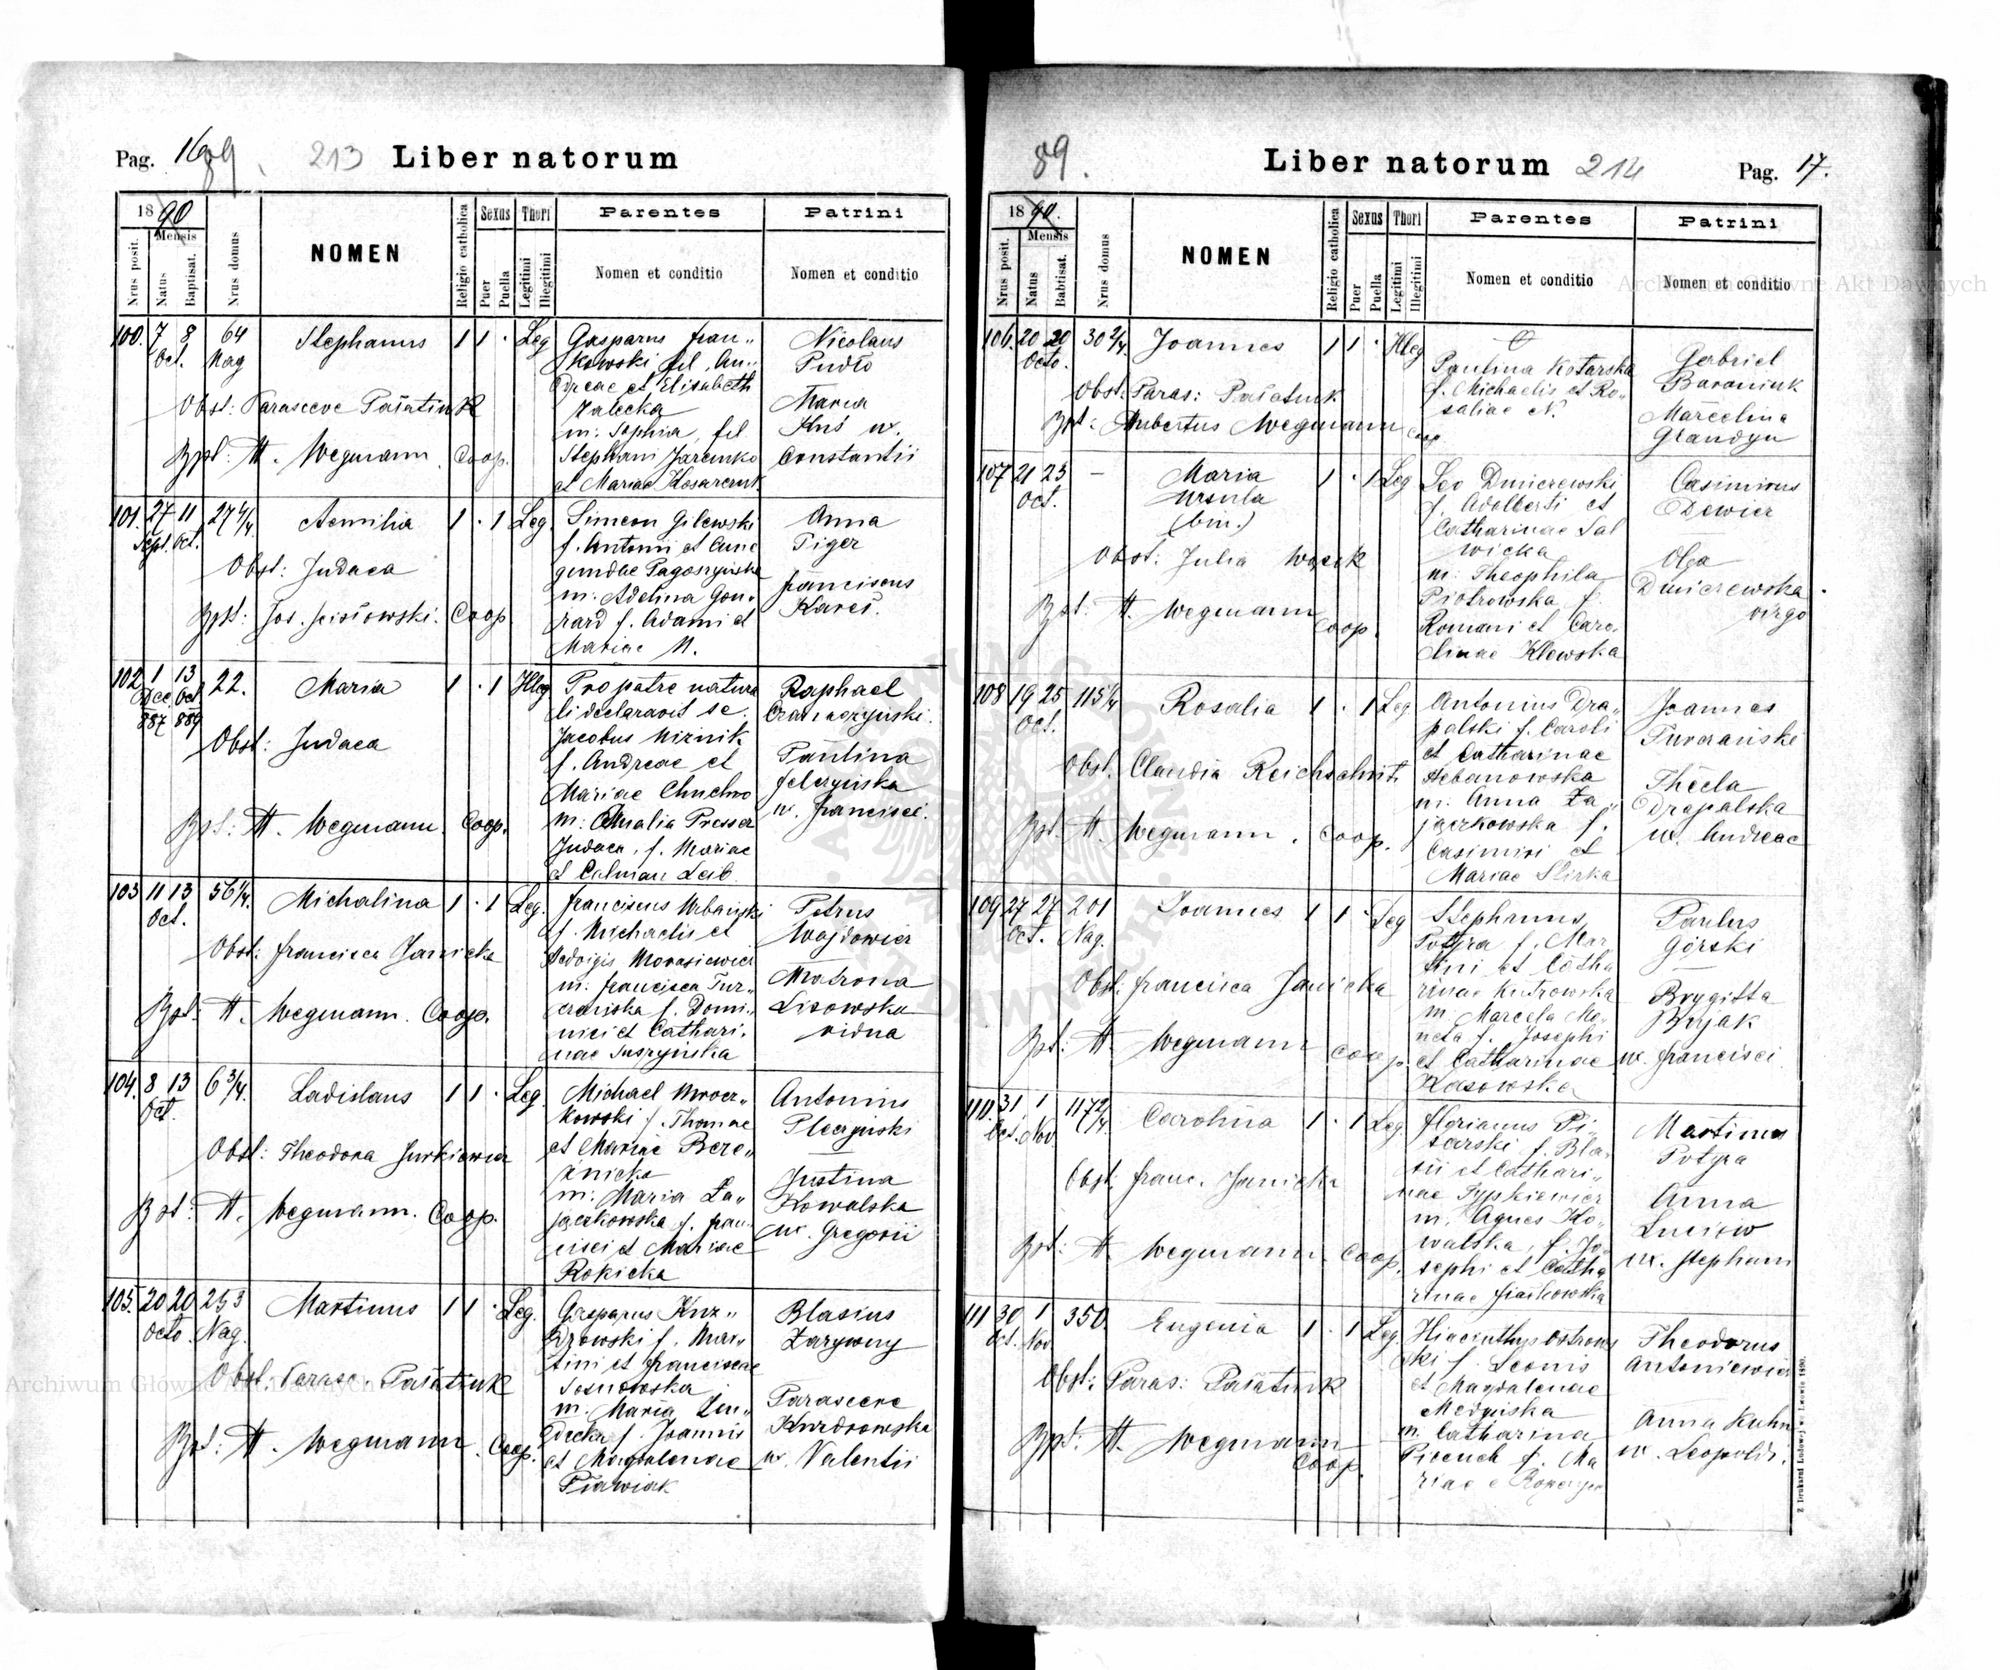 Pag. 16
89.
213
Liber natorum
1890
Mensis
Nrus posit.
Natus
Baptisat.
Nrus domus
NOMEN
Religio catholica
Sexus
Puer
Puella
Thori
Legitimi
Illegitimi
Parentes
Nomen et conditio
Patrini
Nomen et conditio
100. 7 8 64 Stephanus 1 1 · Leg
Oct. Nag
Obst: Parasceve Pašatiuk
Bpt: H. Wegmann. Coop.
Gasparus Fran„
kowski fil. An„
dreae et Elisabeth
Zalecka
m: Sophia, fil
Stephani Jaremko
et Mariae Kosarczuk
Nicolaus
Pudło
Maria
Kuś ux.
Constantii
101. 27 11 27 4/4 Aemilia 1 · 1 Leg.
Sept. Oct.
Obst: Judaea
Bpt: Jos. Coop
Simeon Gilewski
f. Antoni et Cune
gundae
m: Adelina Gon„
rard f. Adami et
Mariae N.
Anna
Piger
Franciscus
Kareś.
102. 1 13 22. Maria 1 · 1 Illeg
Dec. Oct.
887 889
Obst: Judaea
Bpt: H. Wegmann. Coop.
Pro patre natura
li declaravit se
Jacobus Mirnik
f. Andreae et
Mariae Chuchro
m: Amalia Presser
Judaea, f. Mariae
et Calman Leib
Raphael
Paulina
Felczyńska
ux. Francisci.
103 11 13 56 1/4. Michalina 1 · 1 Leg.
Oct.
Obst: Francisca Janicka
Bpt: H. Wegmann. Coop.
Franciscus Urbański
f. Michaelis et
Hedvigis Morasiewicz
m: Francisca Tur„
czańska f. Domi„
nici et Cathari„
nae Suszyńska
Petrus
Wojdowicz
Matrona
Lisowska
vidua
104. 8 13 6 3/4. Ladislaus 1 1 · Leg.
Oct.
Obst: Theodora Jurkiewicz
Bpt: H. Wegmann. Coop.
Michael Mrocz„
kowski f. Thomae
et Mariae Bere„
źnicka
m: Maria Za„
jączkowska f. Fran
cisci et Mariae
Rokicka
Antonius
Pleczyński
Justina
Kowalska
ux. Gregorii
105. 20 20 253 Martinus 1 1 · Leg.
Octo Nag.
Obst: Parasc. Pašatiuk
Bpt: H. Wegmann. Coop.
Gasparus Kur„
drowski f. Mar„
tini et Franciscae
Sosnowska
m. Maria Lin„
decka f. Joannis
et Magdalenae
Piawiak
Blasius
Zarywny
Parasceve
Kurdrowska
ux. Valentii
89.
Liber natorum
214
Pag. 17.
1890.
Mensis
Nrus posit.
Natus
Babtisat.
Nrus domus
NOMEN
Religio catholica
Sexus
Puer
Puella
Thori
Legitimi
Illegitimi
Parentes
Nomen et conditio
Patrini
Nomen et conditio
106. 20 20 30 2/4. Joannes 1 1 · Illeg
Octo.
Obst: Paras: Pašatiuk
Bpt: Hubertus Wegmann Coop
Paulina Kotarska
f. Michaelis et Ro„
saliae N.
Gabriel
Baraniuk
Marcelina
Glandyu
107 21 23 – Maria 1 · 1 Leg
Oct. Ursula
(bin.)
Obst: Julia Wojcik
Bpt: H. Wegmann Coop.
Leo Dmierewski
f. Adalberti et
Catharinae Sal
wicka
m: Theophila
Piotrowska f.
Romani et Caro„
linae Klewska
Casimirus
Dewicz
Olga
Dmierewska
virgo
108 19 25 115 1/4 Rosalia 1 · 1 Leg
Oct.
Obst. Claudia Reichschmit
Bpt: H. Wegmann. Coop.
Antonius Dra„
palski f. Caroli
et Catharinae
Urbanowska
m: Anna Za„
jączkowska f.
Casimiri et
Mariae Slirka
Joannes
Turczański
Thecla
Drapalska
ux. Andreae
109 27 27 201 Joannes 1 1 · Leg
Oct. Nag.
Obst: Francisca Janicka
Bpt: H. Wegmann Coop.
Stephanus
Potyra f. Mar„
tini et Catha
rinae Kutrowska
m. Marcela Mo„
neta f. Josephi
et Catharinae
Kosowska
Paulus
Górski
Brygitta
Bujak
ux. Francisci
110. 31 1 117 2/4 Carolina 1 · 1 Leg
Oct. Nov
Obst. Franc. Janicka
Bpt: H. Wegmann. Coop.
Florianus Pi„
sarski f. Bla„
sii et Cathari„
nae Fypkiewicz
m: Agnes Ko„
walska, f. Jo„
sephi et Catha
rinae Fiałkowska
Martinus
Potyra
Anna
Luciow
ux. Stephani
111 30 1 350. Eugenia 1 · 1 Leg.
Oct. Nov
Obst: Paras: Pašatiuk
Bpt: H. Wegmann Coop.
Hiacinthus Ostrows
ki f. Leonis
et Magdalenae
Medyńska
m. Catharina
Picuch f. Ma
riae
Theodorus
Antoniewicz
Anna Kuhn
ux. Leopoldi.
Z Drukarni Ludowej we Lwowie 1890.
Archiwum Główne Akt Dawnych
Archiwum Główne Akt Dawnych
ARCHIWUM GŁÓWNE AKT DAWNYCH